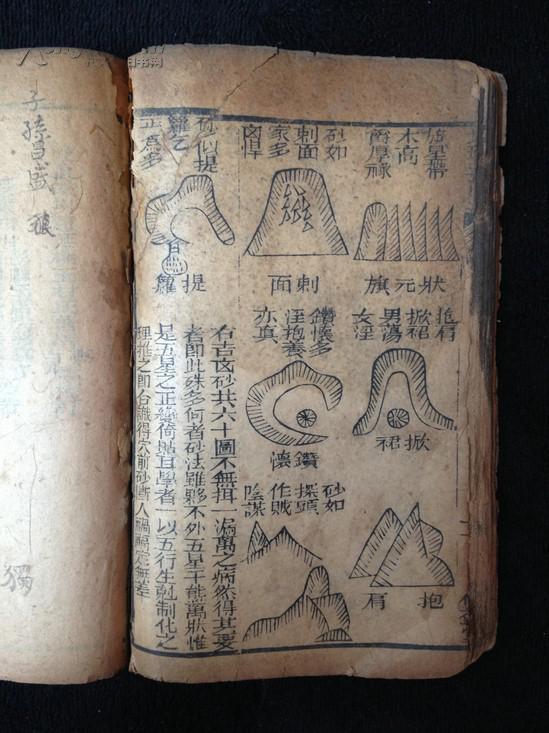 子孫昌盛
木高
爵厚祿
狀元旗
砂如
刺面
家多
凶悍
刺面
砂似提
籮乞
正為多
提籮
抱肩
掀裙
男蕩
女淫
掀裙
鑽懷多
淫抱養
亦真
鑽懷
抱肩
砂如
探頭
作賊
陰謀
右吉凶砂共六十圖不無掛一漏萬之病然得其要
者即此殊多何者砂法雖夥不外五星千態萬狀惟
是五星之正變倚貼耳學者一以五行生剋制化之
理推之即合識得穴前砂斷人禍福定無差
獨